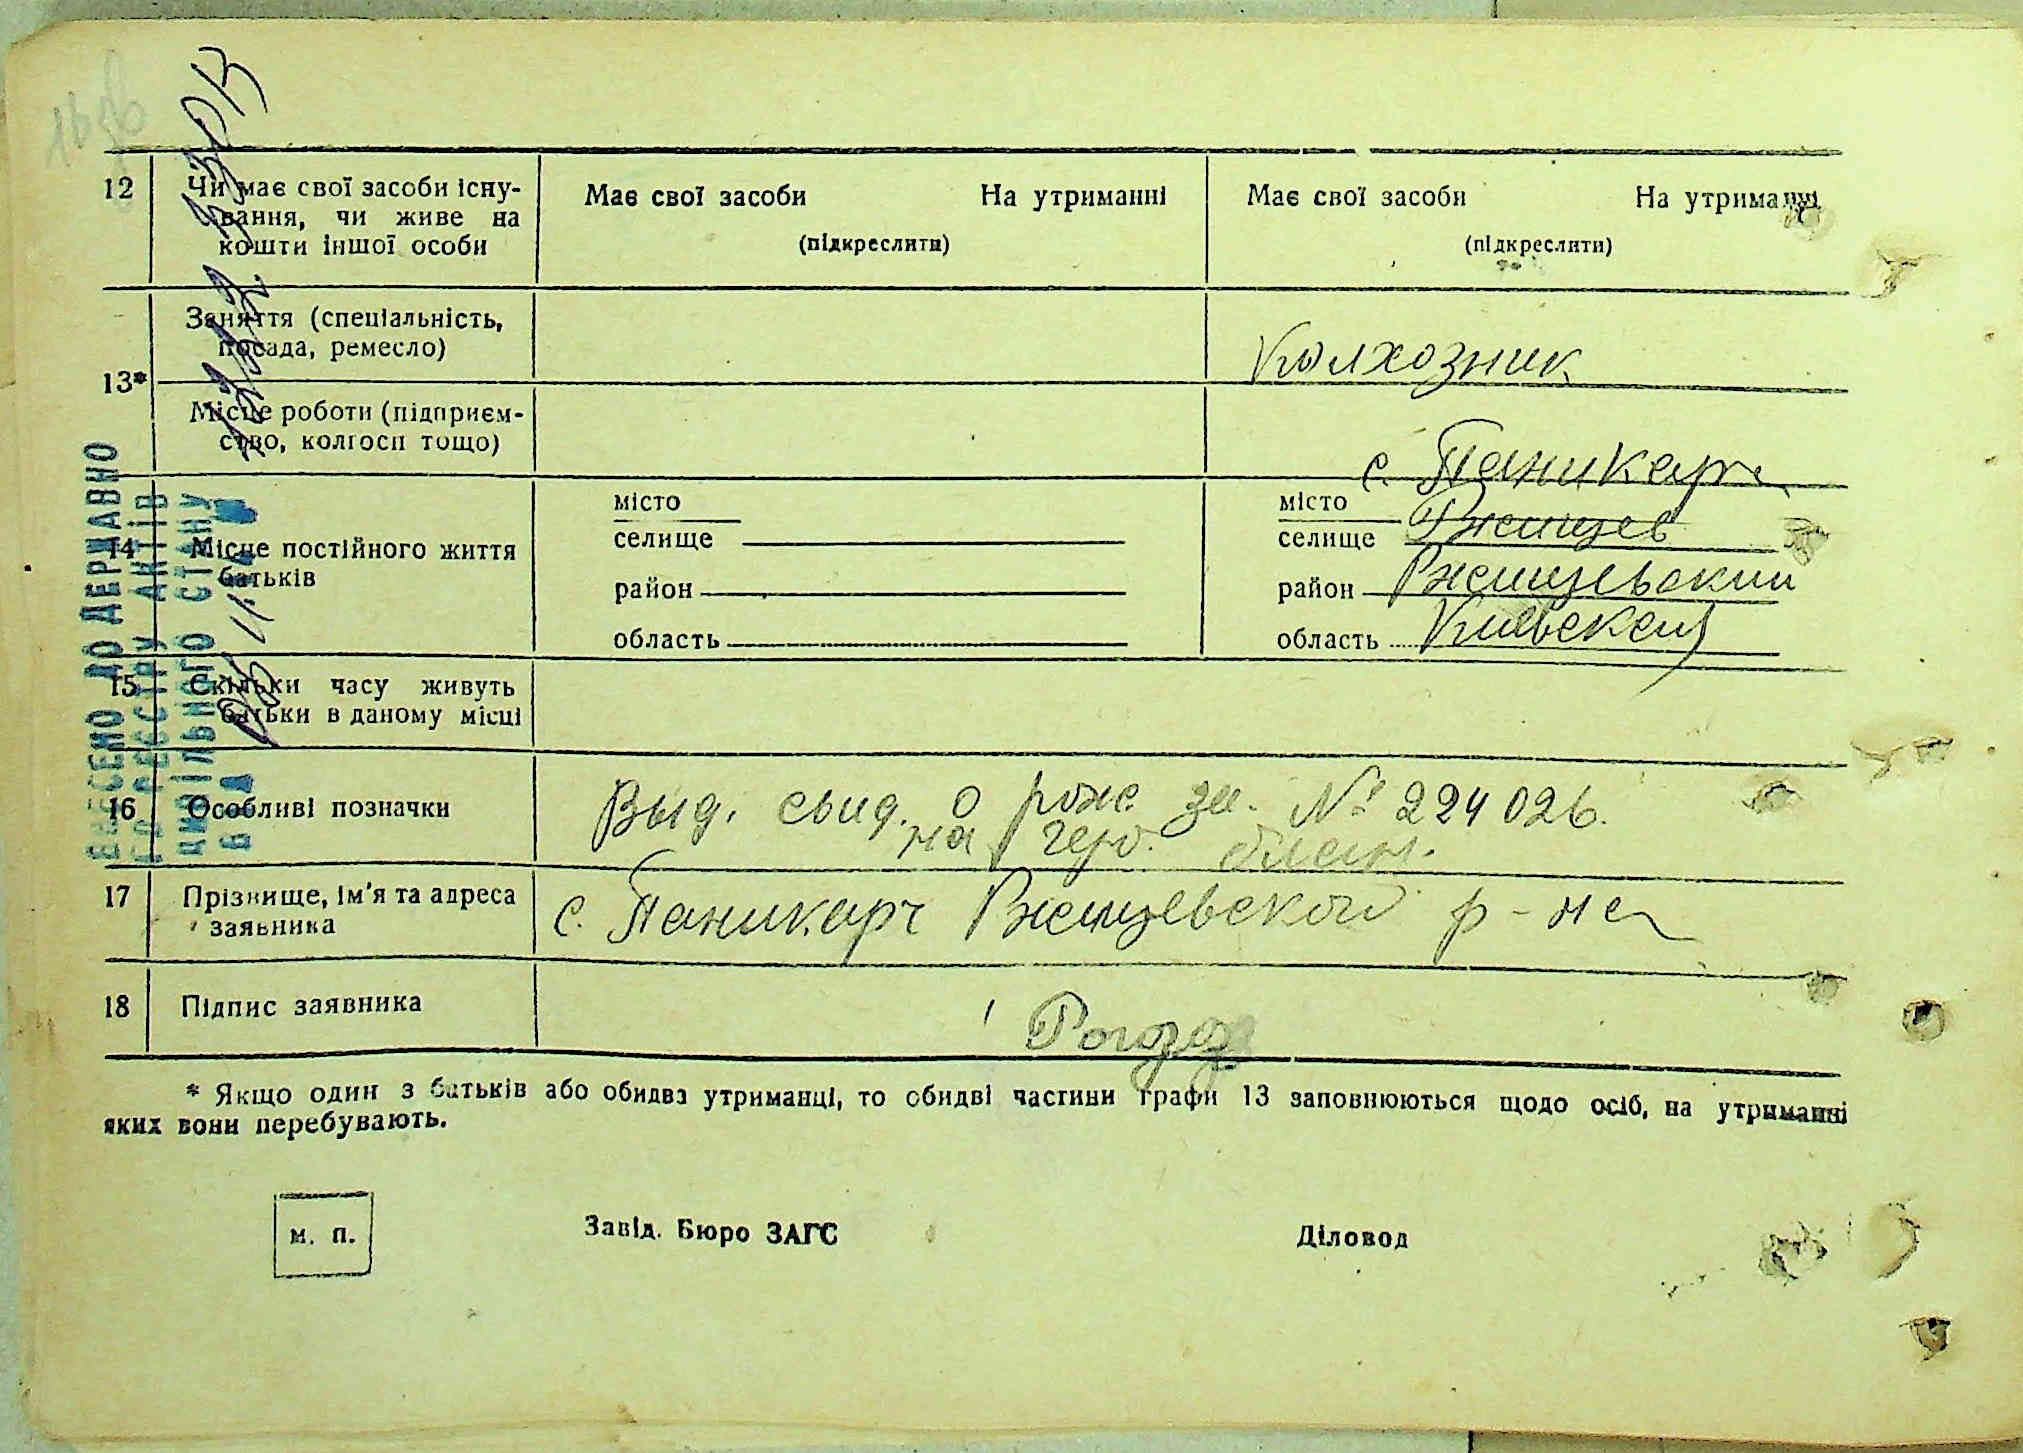 12
Чи має свої засоби існу-
вання, чи живе на
кошти іншої особи
Має свої засоби На утриманні
(підкреслити)
Має свої засоби На утриманні
(підкреслити)
13*
Заняття (спеціальність,
посада, ремесло)
Колхозник
Місце роботи (підприєм-
ство, колгосп тощо)
14
Місце постійного життя
батьків
місто
селище
район
область
с. Паникарч
місто
селище Ржищев
район Ржищевский
область Киевская
15
Скільки часу живуть
батьки в даному місці
16
Особливі позначки
Выд. свид. о рож за. № 224026.
на герб. блан.
17
Прізвище, ім'я та адреса
заявника
с. Паникарч Ржищевского р-на
18
Підпис заявника
* Якщо один з батьків або обидва утриманці, то обидві частини графи 13 заповнюються щодо осіб, на утриманні
яких вони перебувають.
м. п.
Завід. Бюро ЗАГС
Діловод
ВНЕСЕНО ДО ДЕРЖАВНО
ГО РЕЄСТРУ АКТІВ
ЦИВІЛЬНОГО СТАНУ